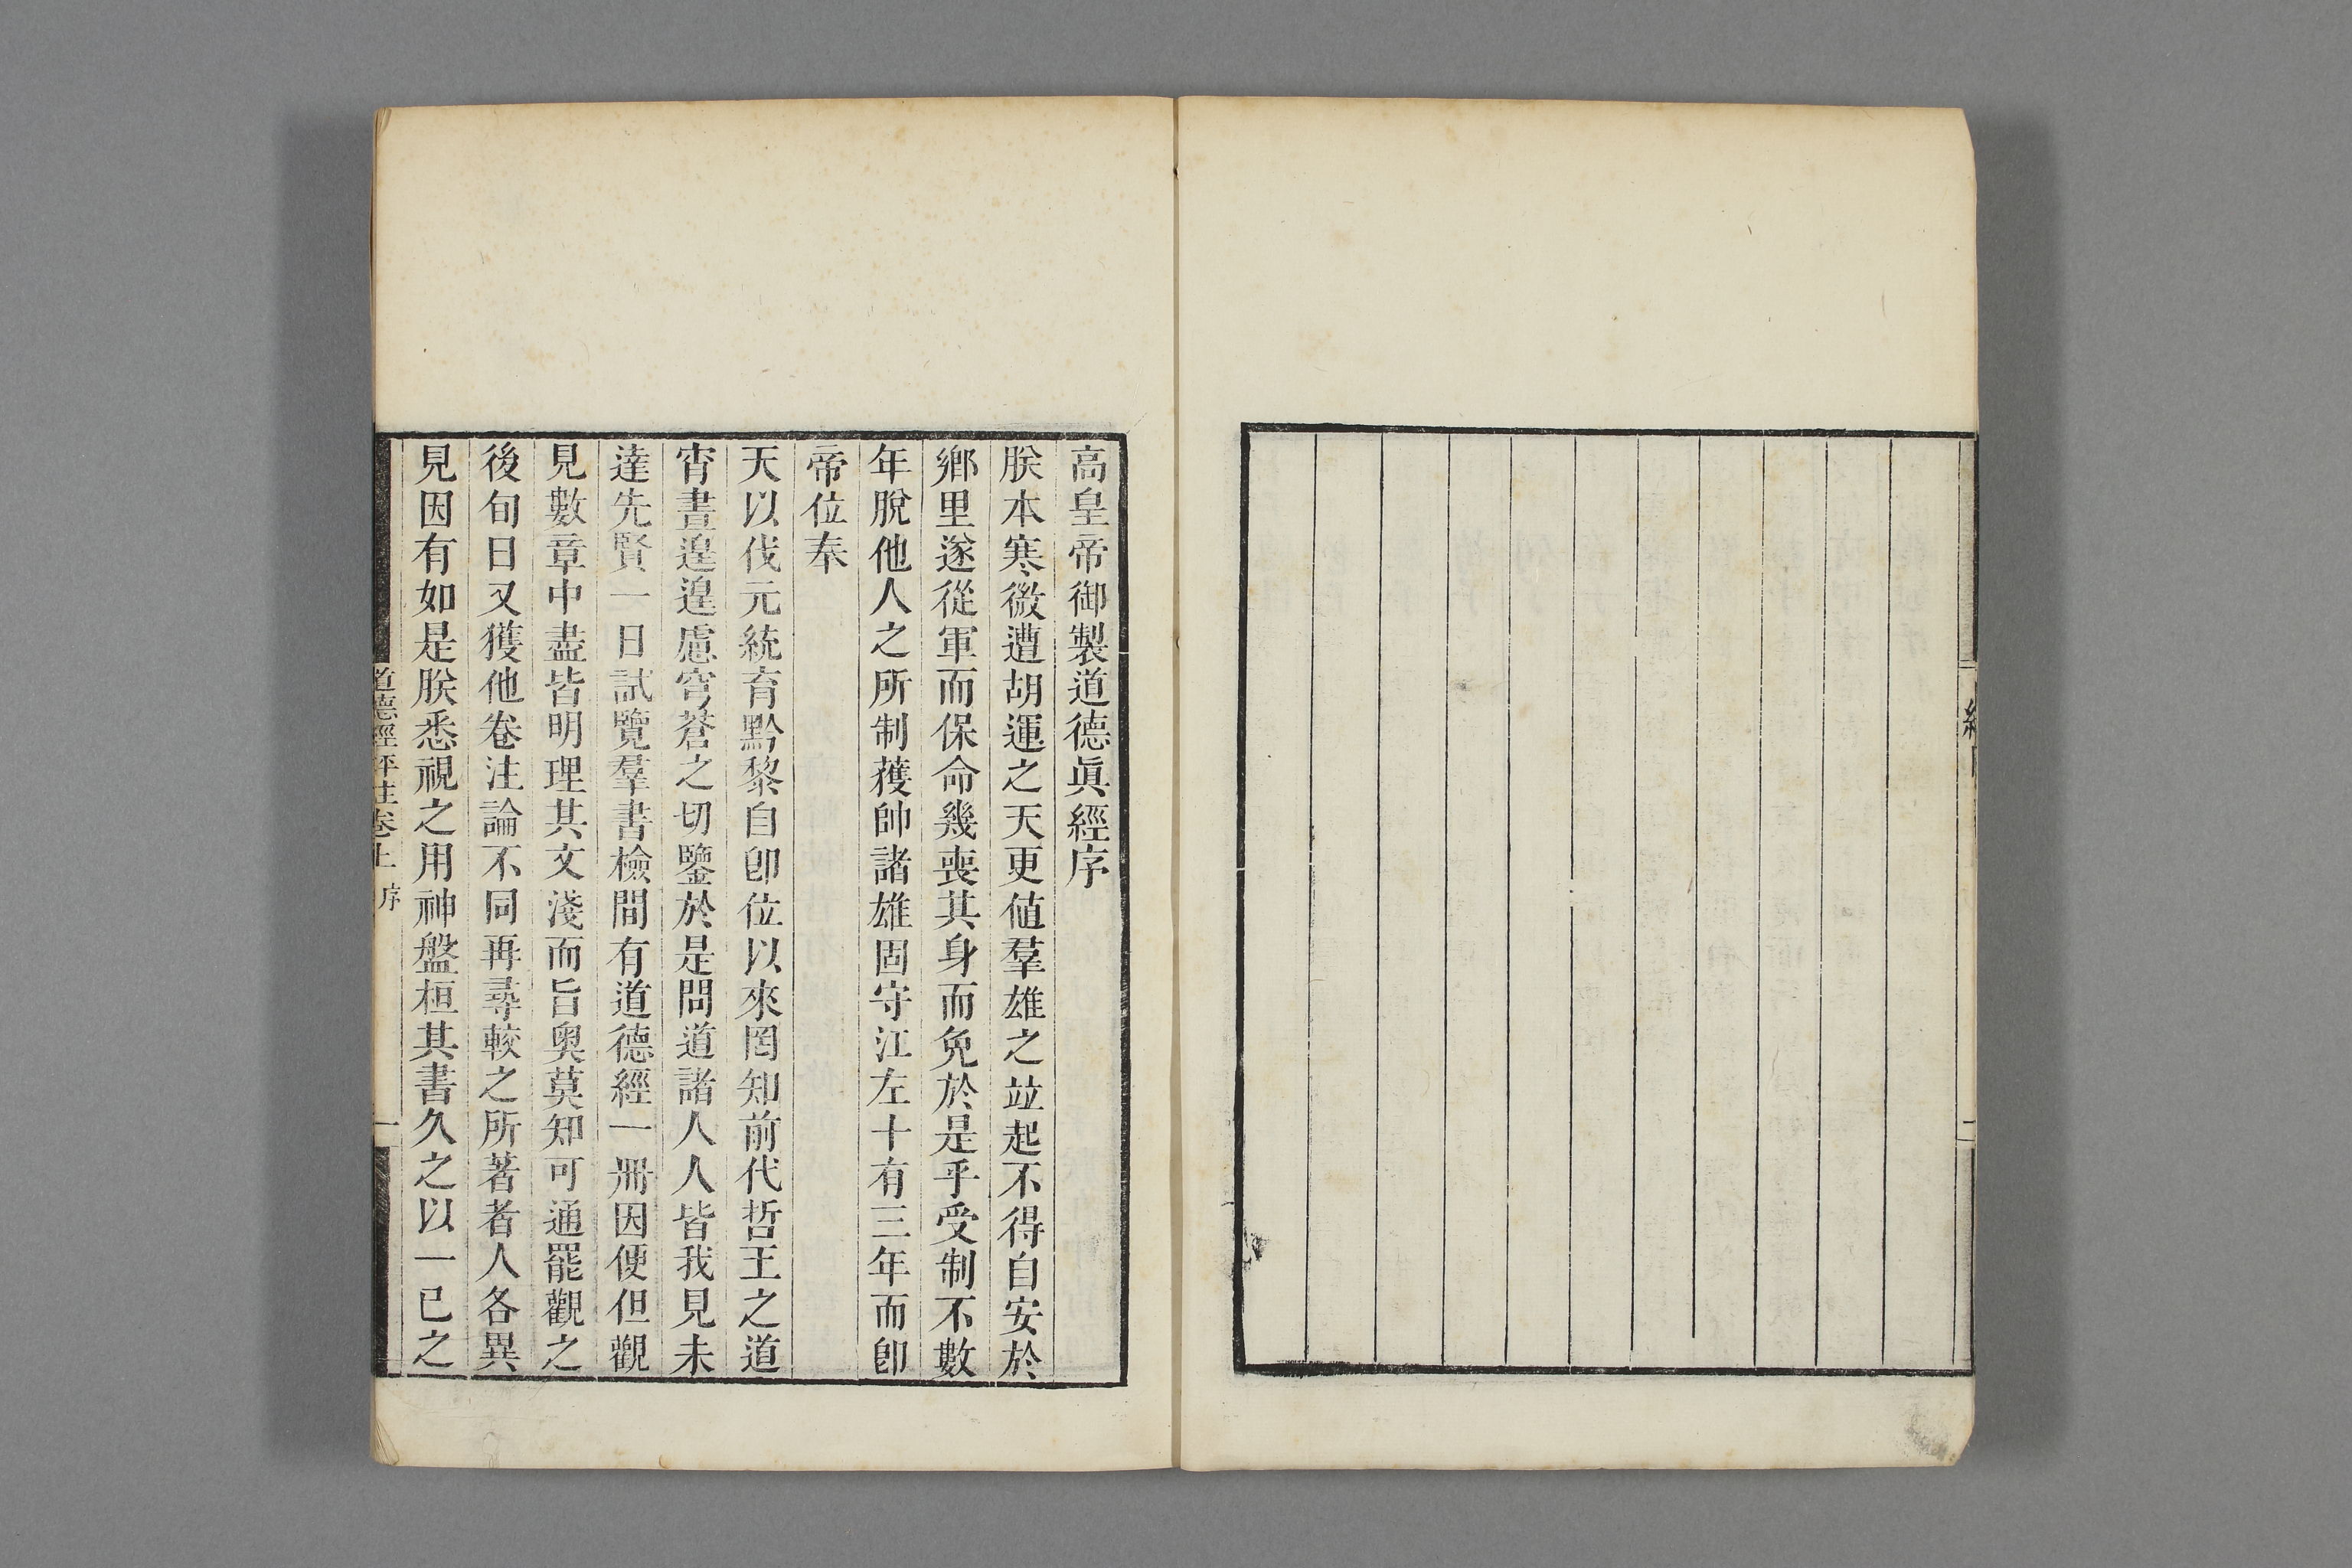 高皇帝御製道德眞經序
朕本寒微遭胡運之天更値羣雄之竝起不得自安於
鄕里遂從軍而保命幾喪其身而免於是乎受制不數
年脫他人之所制獲帥諸雄固守江左十有三年而卽
帝位奉
天以伐元統育黔黎自卽位以來罔知前代哲王之道
宵晝遑遑慮穹蒼之切鑒於是問道諸人人皆我見未
達先賢一日試覽羣書檢間有道德經一冊因便但觀
見數章中盡皆明理其文淺而旨奥莫知可通罷觀之
後旬日又獲他卷注論不同再尋較之所著者人各異
見因有如是朕悉視之用神盤桓其書久之以一己之
道德經評註卷上 序 一